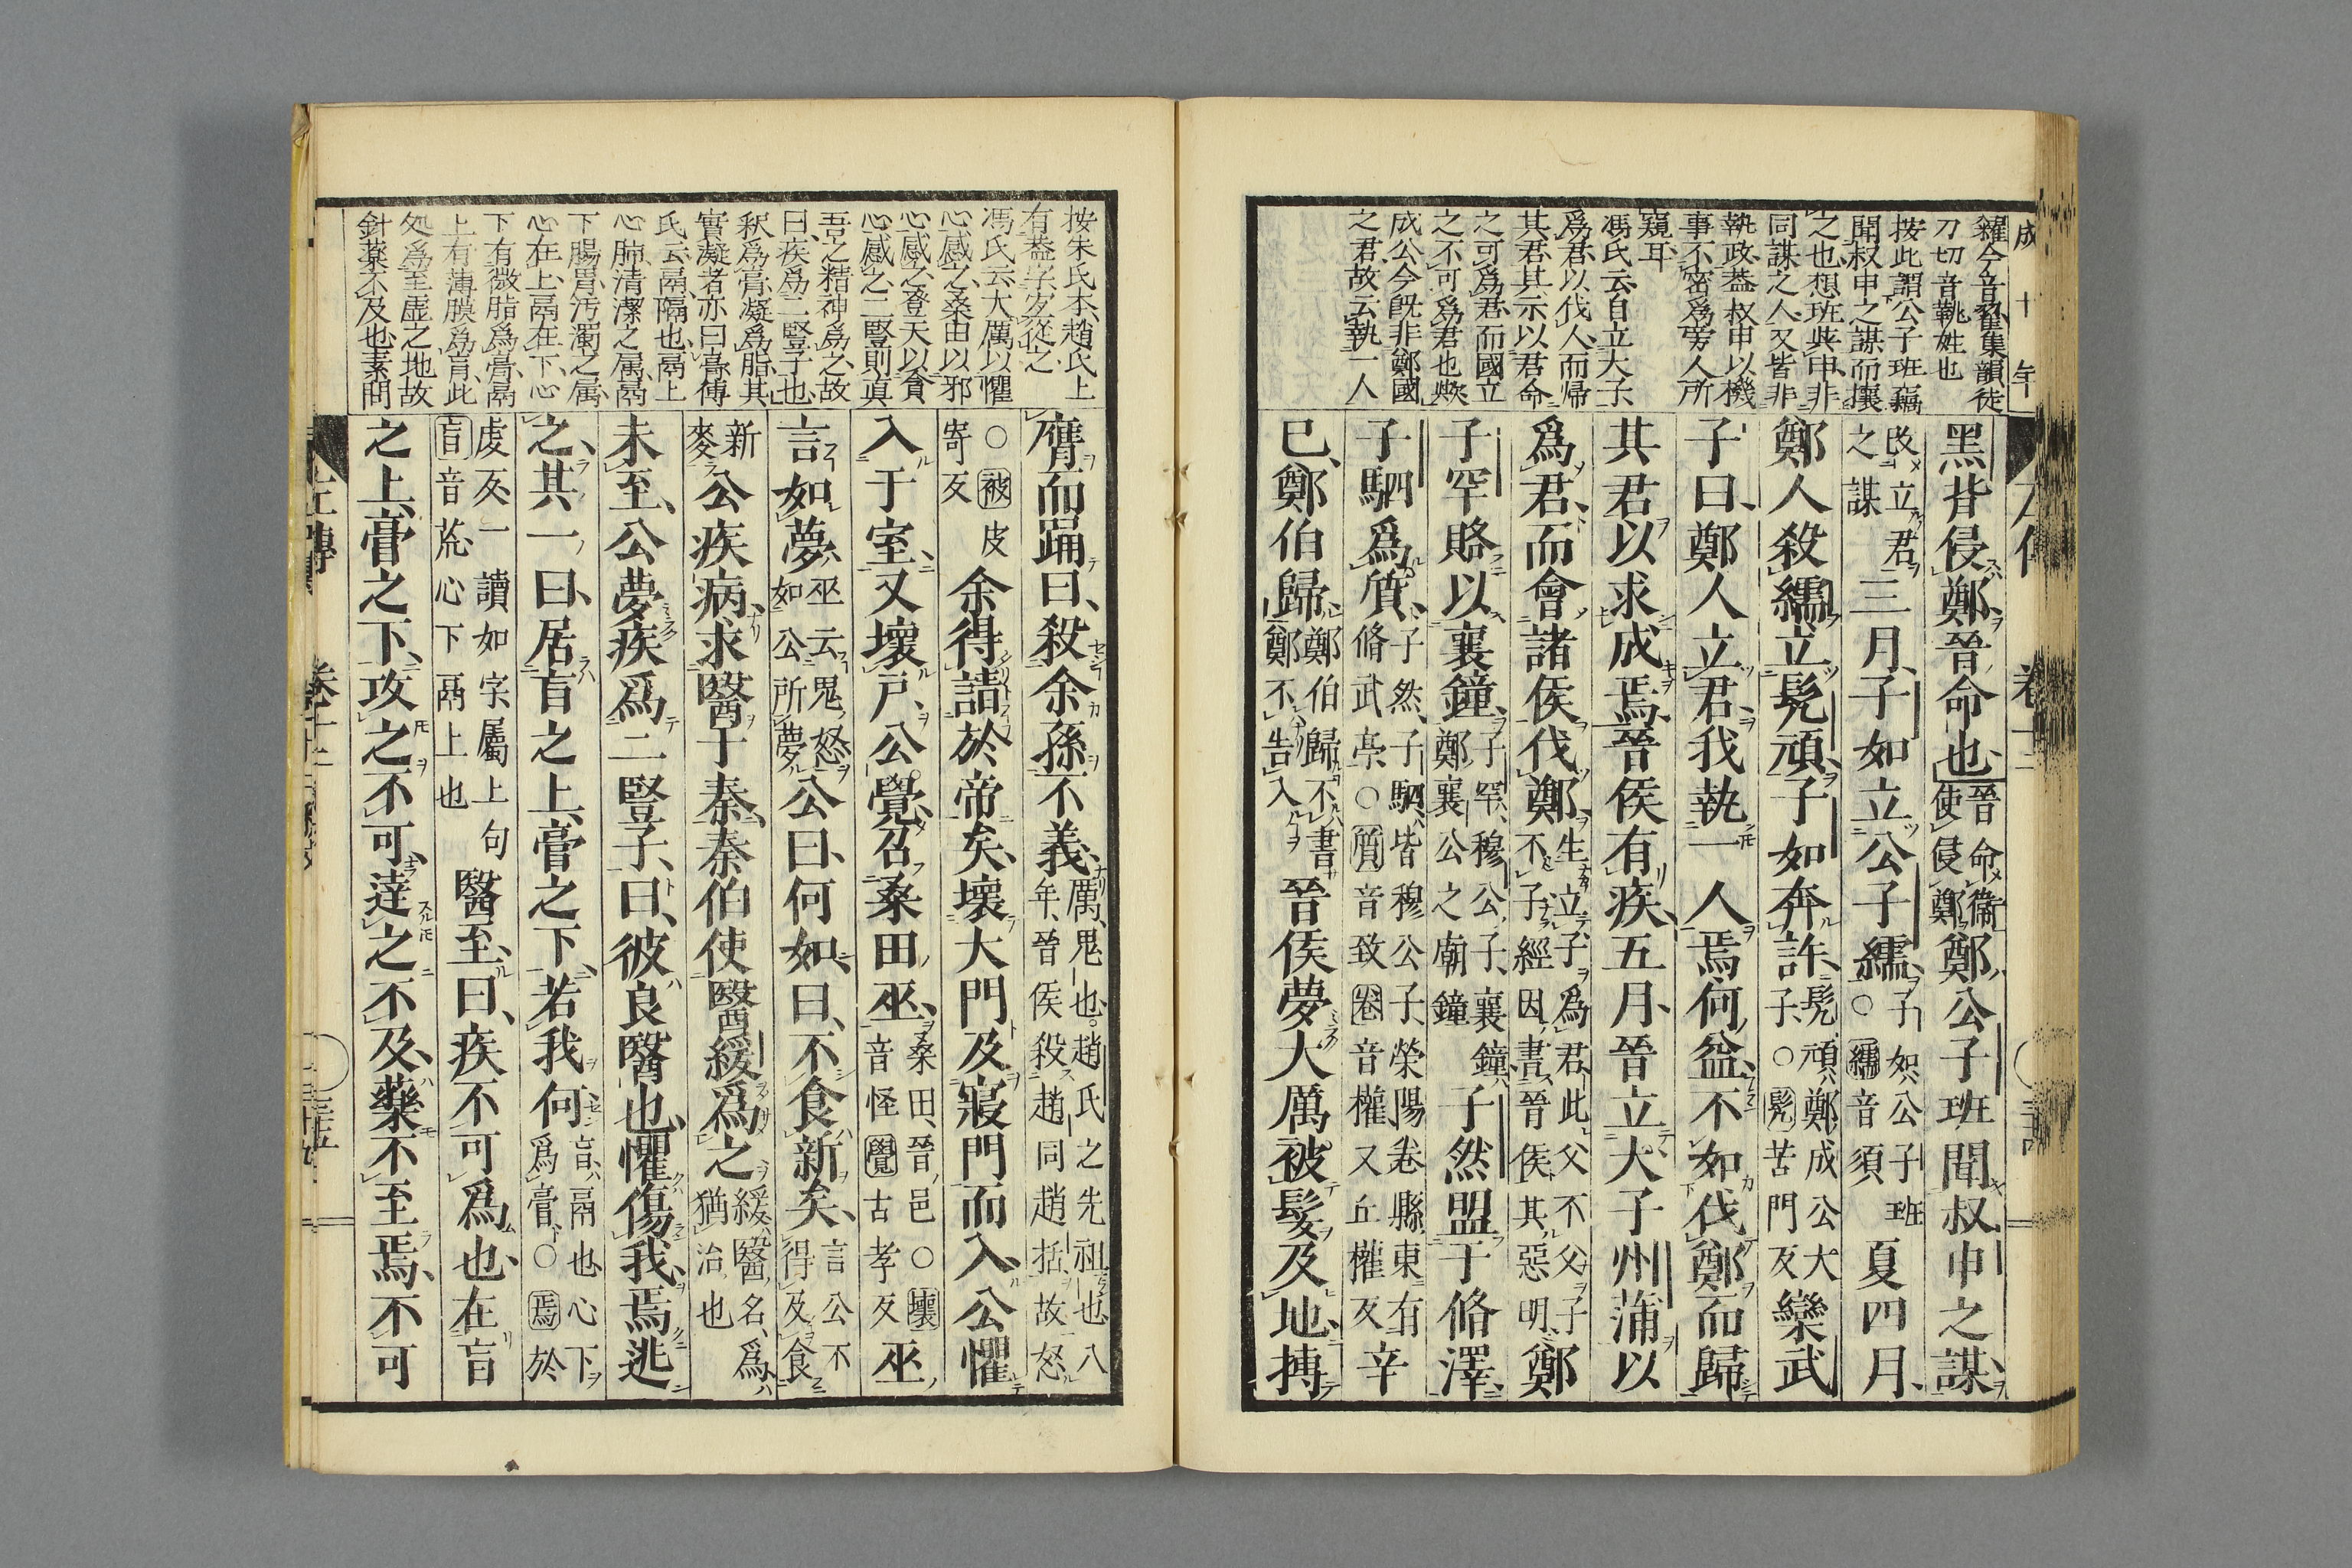 成十年
糴今音翟集韻徒
刀切音鞉姓也
按此謂公子班竊
聞叔申之謀而攘
之也想班與申非
同謀之人又皆非
執政蓋叔申以機
事不密爲旁人所
窺耳
馮氏云自立大子
爲君以伐人而歸
其君其示以君命
之可爲君而國立
之不可爲君也然
成公今既非鄭國
之君故云執一人
黑背侵鄭晉命也晉命衞使侵鄭鄭公子班聞叔申之謀
改立君之謀三月子如立公子繻○子如公子班繻音須夏四月
鄭人殺繻立髡頑子如奔許髡頑鄭成公大子○髡苦門反欒武
子曰鄭人立君我執一人焉何益不如伐鄭而歸
其君以求成焉晉侯有疾五月晉立大子州蒲以
爲君而會諸侯伐鄭生立子爲君此父不父子不子經因書晉侯其惡明鄭
子罕賂以襄鐘子罕穆公子襄鐘鄭襄公之廟鐘子然盟于脩澤
子駟爲質子然子駟皆穆公子滎陽卷縣東有脩武亭○質音致卷音權又丘權反辛
巳鄭伯歸鄭伯歸不書鄭不告入晉侯夢大厲被髮及地搏
按朱氏本趙氏上
有蓋字宜從之
馮氏云大厲以懼
心感之桑田以邪
心感之登天以貪
心感之二豎則眞
吾之精神爲之故
曰疾爲二豎子也
釈爲膏凝爲脂其
實凝者亦曰膏傅
氏云鬲隔也鬲上
心肺清潔之属鬲
下腸胃汚濁之属
心在上鬲在下心
下有微脂爲膏鬲
上有薄膜爲肓此
処爲至虛之地故
針薬不及也素問
膺而踊曰殺余孫不義厲鬼也趙氏之先祖也八年晉侯殺趙同趙括故怒
○被皮寄反余得請於帝矣壞大門及寢門而入公懼
入于室又壞戸公覺召桑田巫桑田晉邑○壞音怪覺古孝反巫
言如夢巫云鬼怒如公所夢公曰何如曰不食新矣言公不得及食
新麥公疾病求醫于秦秦伯使醫緩爲之緩醫名爲猶治也
未至公夢疾爲二豎子曰彼良醫也懼傷我焉逃
之其一曰居肓之上膏之下若我何肓鬲也心下爲膏○焉於
虔反一讀如字屬上句肓音荒心下鬲上也醫至曰疾不可爲也在肓
之上膏之下攻之不可達之不及藥不至焉不可
左傳　卷十二